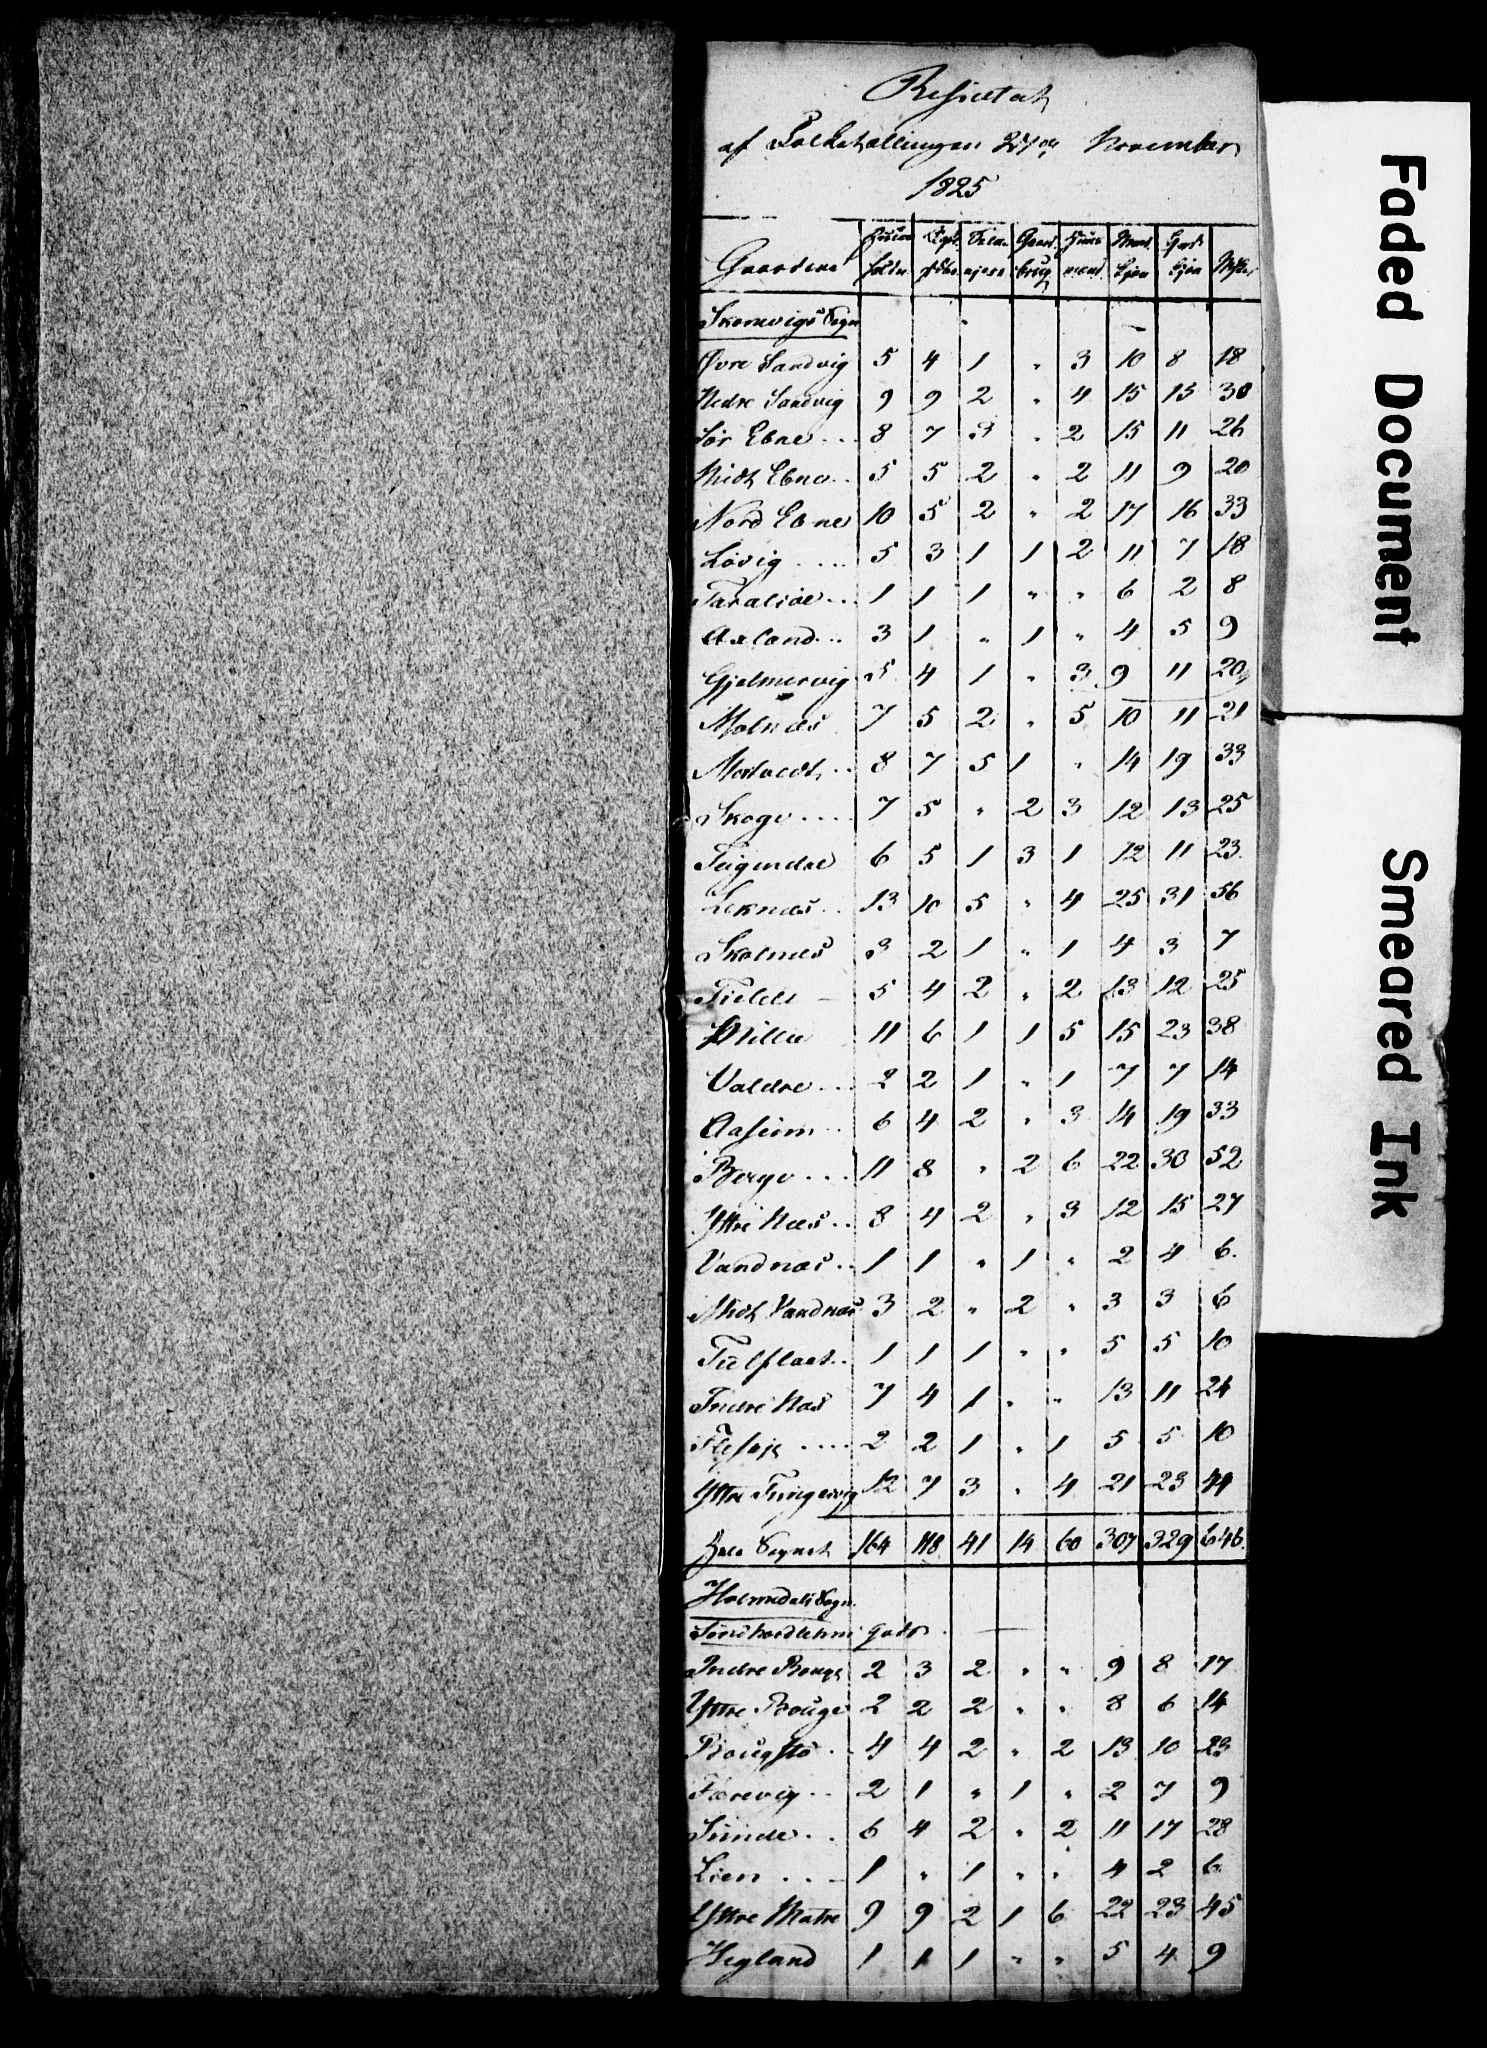 Resultat
af Folketællingen 27de November
1825
Gaardene
Skonevigs Sogn
Øvre Sandvig 5 4 1 " 3 10 8 18
Nedre Sandvig 9 9 2 " 4 15 15 30
Sör Ebne 8 7 3 " 2 15 11 26
Midt Ebne 5 5 2 " 2 11 9 20
Nord Ebne 10 5 2 " 2 17 16 33
Lövig 5 3 1 1 2 11 7 18
Taraldöe 1 1 1 " " 6 2 8
Axland 3 1 " 1 " 4 5 9
Gjelmervig 5 4 1 " 3 9 11 20
Molnæs 7 5 2 " 5 10 11 21
Mortvedt 8 7 5 1 " 14 19 33
Skoge 7 5 " 2 3 12 13 25
Teigendal 6 5 1 3 1 12 11 23
Leknæs 13 10 5 " 4 25 31 56
Skolnæs 3 2 1 " 1 4 3 7
Fielde 5 4 2 " 2 13 12 25
Millie 11 6 1 1 5 15 23 38
Valdre 2 2 1 " 1 7 7 14
Aaheim 6 4 2 " 3 14 19 33
Berge 11 8 " 2 6 22 30 52
Yttre Næs 8 4 2 " 3 12 15 27
Vandnæs 1 1 " 1 " 2 4 6
Midt Vandnæs 3 2 " 2 " 3 3 6
1 1 1 " " 5 5 10
Indre Næs 7 4 1 " " 13 11 24
2 2 1 " 1 5 5 10
Yttre Tungesvig 12 7 3 " 4 21 23 44
Hele Sognet 164 118 41 14 60 307 329 646
Holmedals Sogn
Sönd hordlehns Gods
Indre Bouge 2 3 2 " " 9 8 17
Yttre Bouge 2 2 2 " " 8 6 14
Bougstö 4 4 2 " 2 13 10 23
Færevig 2 1 " 1 " 2 7 9
Sunde 6 4 2 " 2 11 17 28
Lien 1 " 1 " " 4 2 6
Yttre Matre 9 9 2 1 6 22 23 45
Hegland 1 1 1 " " 5 4 9
Faded Document
Smeared Ink